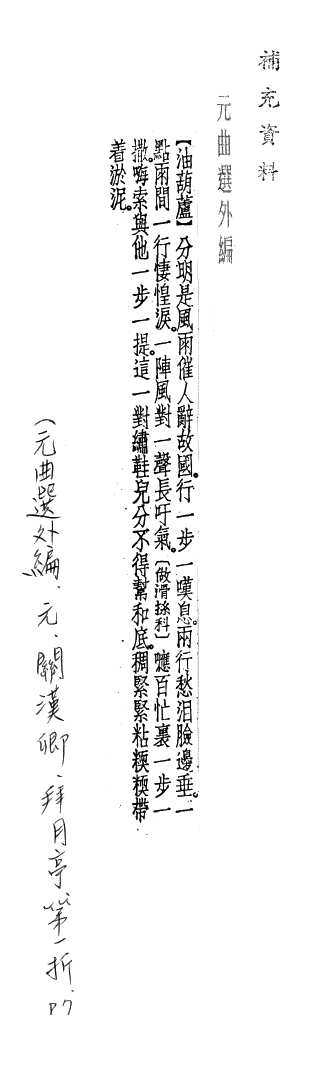 補充資料
元曲選外編
【油葫蘆】分明是風雨催人辭故國。行一步一嘆息。兩行愁泪臉邊垂。一
點雨間一行悽惶淚。一陣風對一聲長吁氣。〔做滑擦科〕嗯百忙裏一步一
撒。嗨索與他一步一提。這一對繡鞋兒分不得幫和底。稠緊緊粘糯糯帶
着淤泥。
(元曲選外編、元、關漢卿、拜月亭第一折、P7